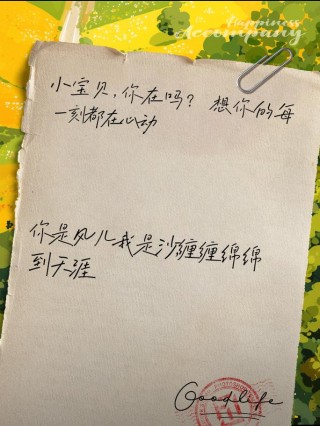 Happiness
Accompany
小宝贝，你在吗？ 想你的每
一刻都在心动
你是风儿我是沙缠缠绵绵
到天涯
Goodlife